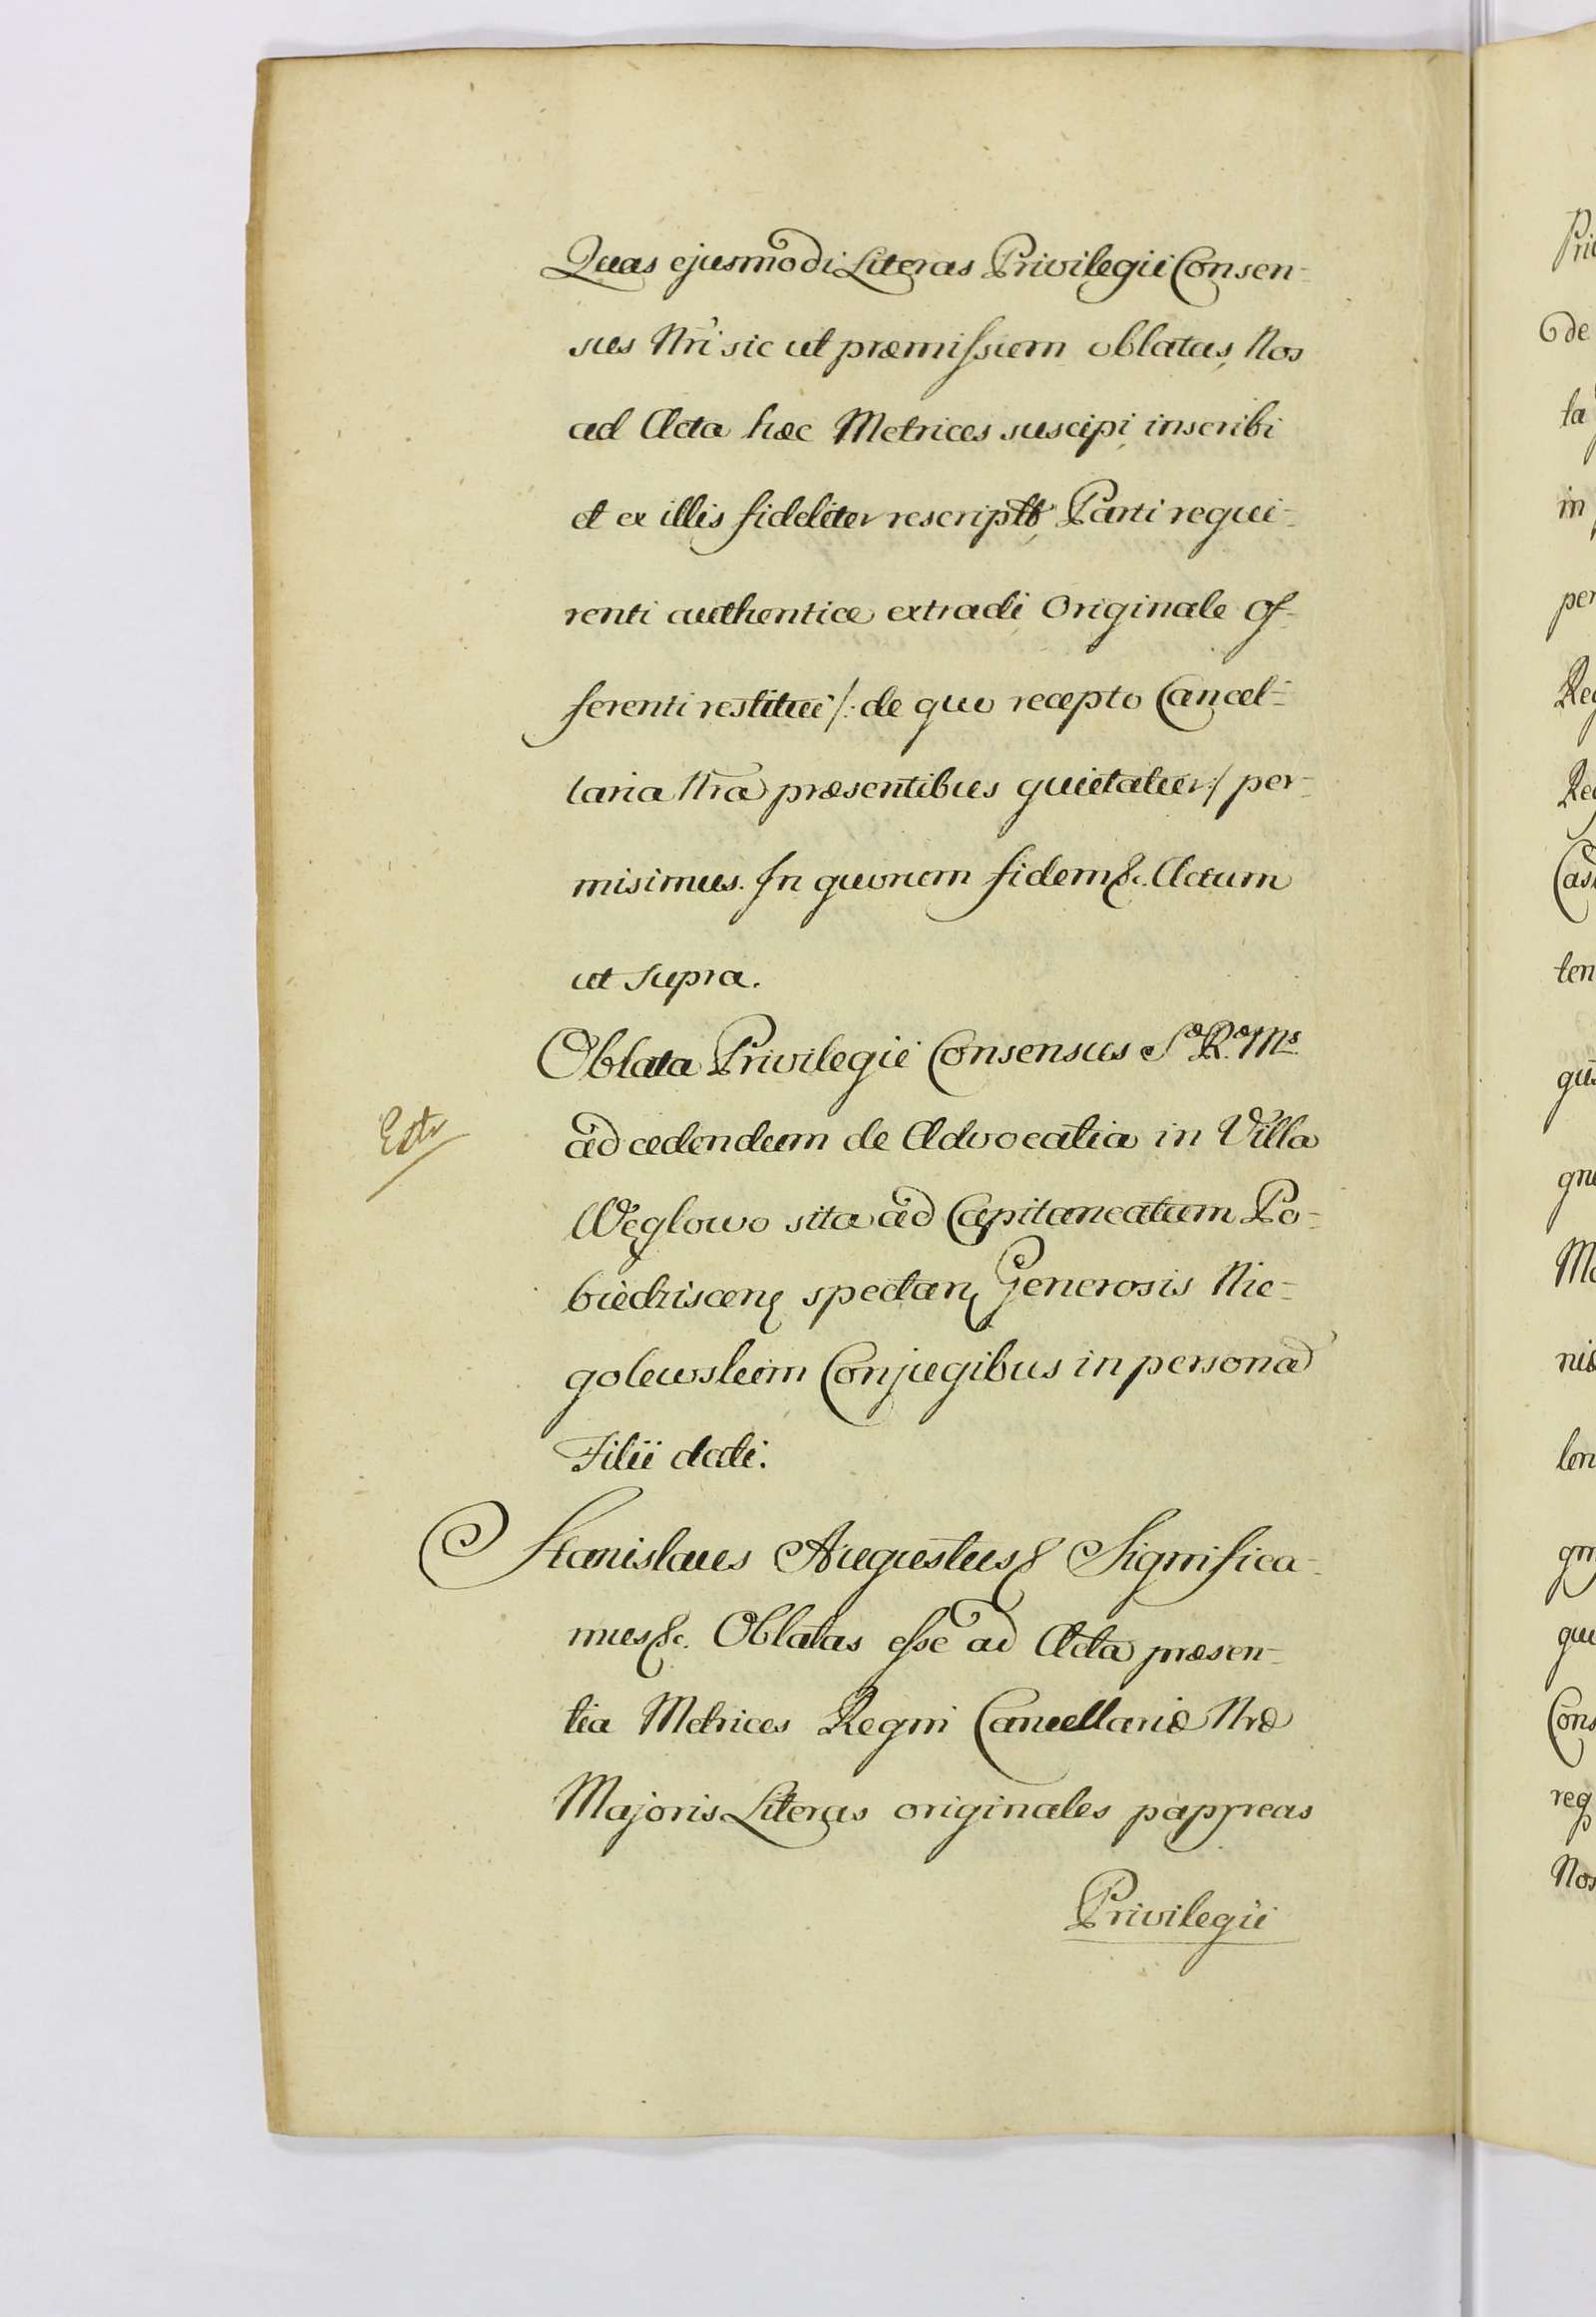 Quas ejusmodi Literas Privilegii Consen-
sus Nri sic ut præmissum oblatas, Nos
ad Acta hæc Metrices suscipi, inscribi
et ex illis fideliter Parti requi-
renti authentice extradi Originale of-
ferenti restitui /: de quo recepto Cancel-
laria Nra præsentibus quietatur :/ per-
misimus. In quorum fidem &c. Actum
ut supra.
Oblata Privilegii Consensus S.æ R.æ M.s
ad cedendum de Advocatia in Villa
Węglowo sita ad Capitaneatum Po-
biedziscen spectan Generosis Nie-
golewskim Conjugibus in persona
Filii dati.
Extr
Stanislaus Augustus &c Significa-
mus &c. Oblatas esse ad Acta præsen-
tia Metrices Regni Cancellariæ Nræ
Majoris Literas originales papyreas
Privilegii
Pri
de
ta
in
per
Reg
Reg
Cas
ten
gni
Ma
niæ
len
gni
qui
Cons
req
Nos